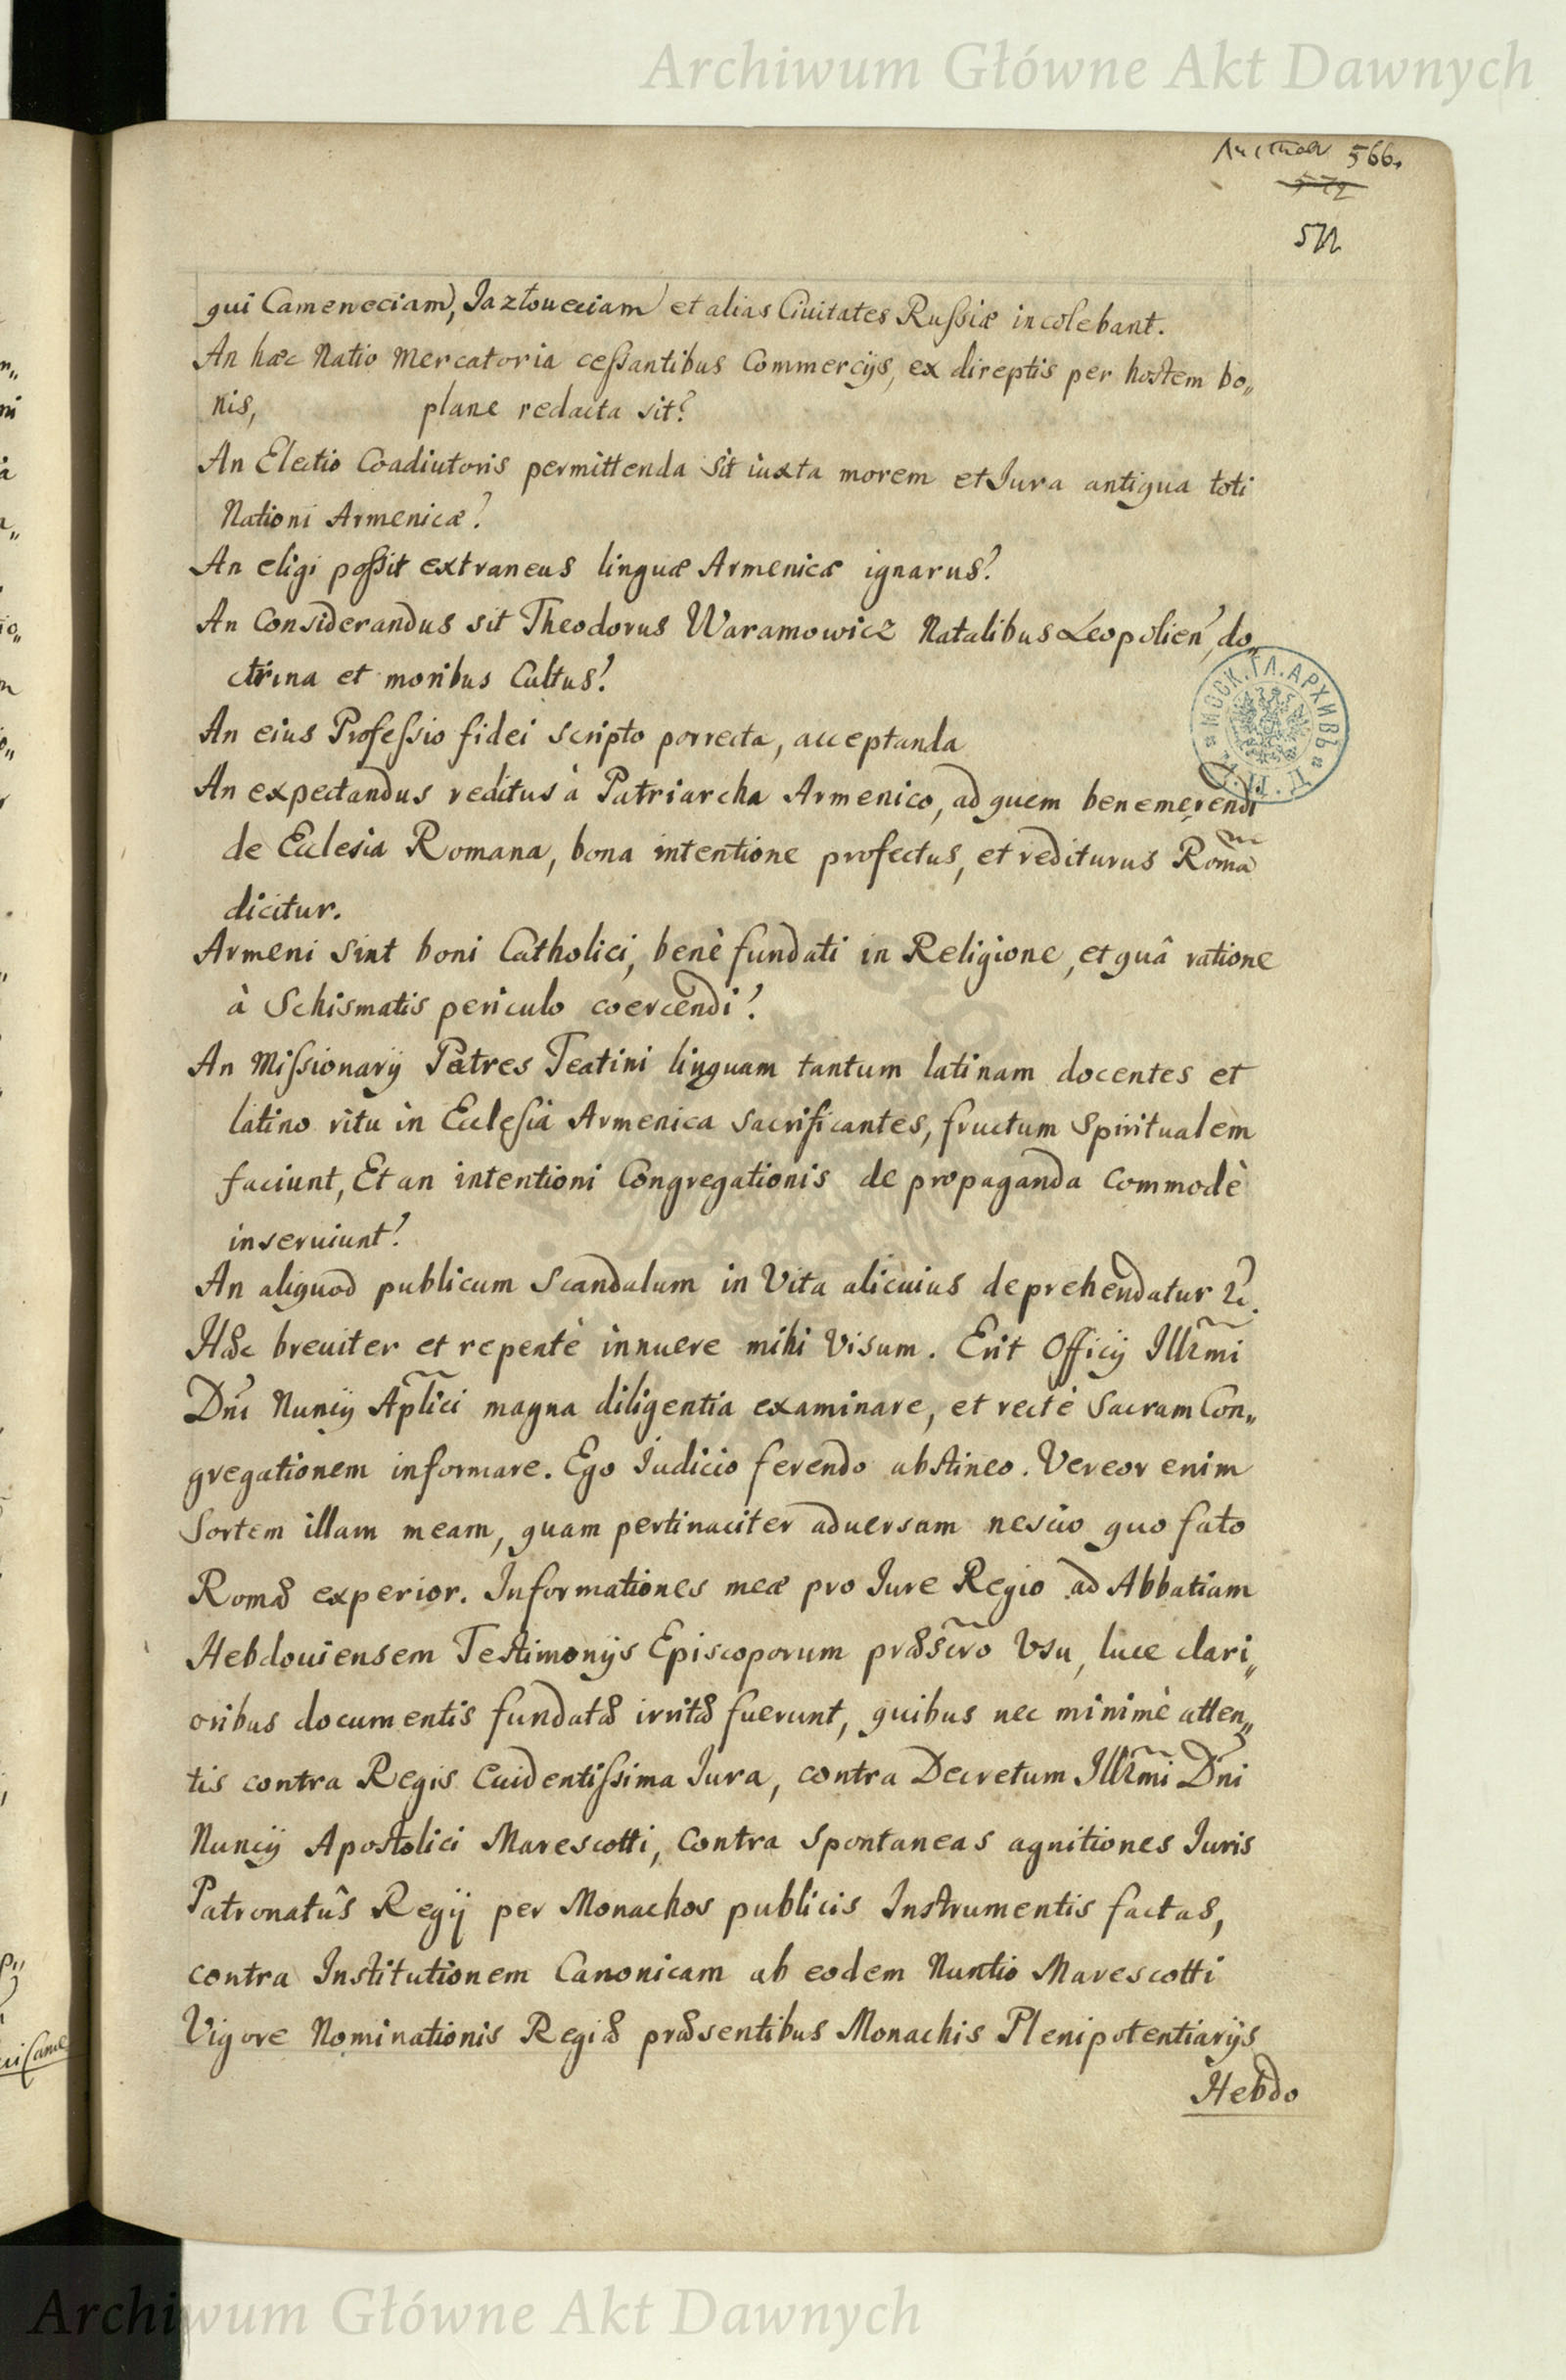 Archiwum Główne Akt Dawnych
566.
572
qui Cameneciam, Jazłoveciam et alias Ciuitates Russiæ incolebant.
An hæc Natio Mercatoria cessantibus Commercijs, ex direptis per hostem bo„
nis, plane redacta sit?
An Electio Coadiutoris permittenda sit iuxta morem et Jura antiqua toti
Nationi Armenicæ?
An eligi possit extraneus linguæ Armenicæ ignarus?
An Considerandus sit Theodorus Waramowicz Natalibus Leopolien, do„
ctrina et moribus Cultus?
An eius Professio fidei scripto porrecta, acceptanda
An expectandus reditus à Patriarcha Armenico, ad quem benemerendi
de Ecclesia Romana, bona intentione profectus, et rediturus Romã
dicitur.
Armeni sint boni Catholici, benè fundati in Religione, et quâ ratione
à Schismatis periculo coercendi?
An Missionarÿ Patres Teatini linguam tantum latinam docentes et
latino ritu in Ecclesia Armenica sacrificantes, fructum Spiritualem
faciunt, Et an intentioni Congregationis de propaganda Commodè
inseruiunt?
An aliquod publicum Scandalum in Vita alicuius deprehendatur &c.
Hæc breuiter et repentè innuere mihi Visum. Erit Officÿ Illr̃mi
Dn̄i Nuncÿ Apl̃ici magna diligentia examinare, et rectè Sacram Con„
gregationem informare. Ego Iudicio ferendo abstineo. Vereor enim
Sortem illam meam, quam pertinaciter aduersam nescio quo fato
Romæ experior. Informationes meæ pro Jure Regio ad Abbatiam
Hebdouiensem Testimonijs Episcoporum præscr̃o Vsu, luce clari„
oribus documentis fundatæ irritæ fuerunt, quibus nec minimè atten„
tis contra Regis Euidentissima Jura, contra Decretum Illr̃mi Dn̄i
Nuncÿ Apostolici Marescotti, Contra Spontaneas agnitiones Juris
Patronatûs Regÿ per Monachos publicis Instrumentis factas,
contra Institutionem Canonicam ab eodem Nuntio Marescotti
Vigore Nominationis Regiæ præsentibus Monachis Plenipotentiarÿs
Hebdo
МОСК. ГЛ. АРХИВЪ
Archiwum Główne Akt Dawnych